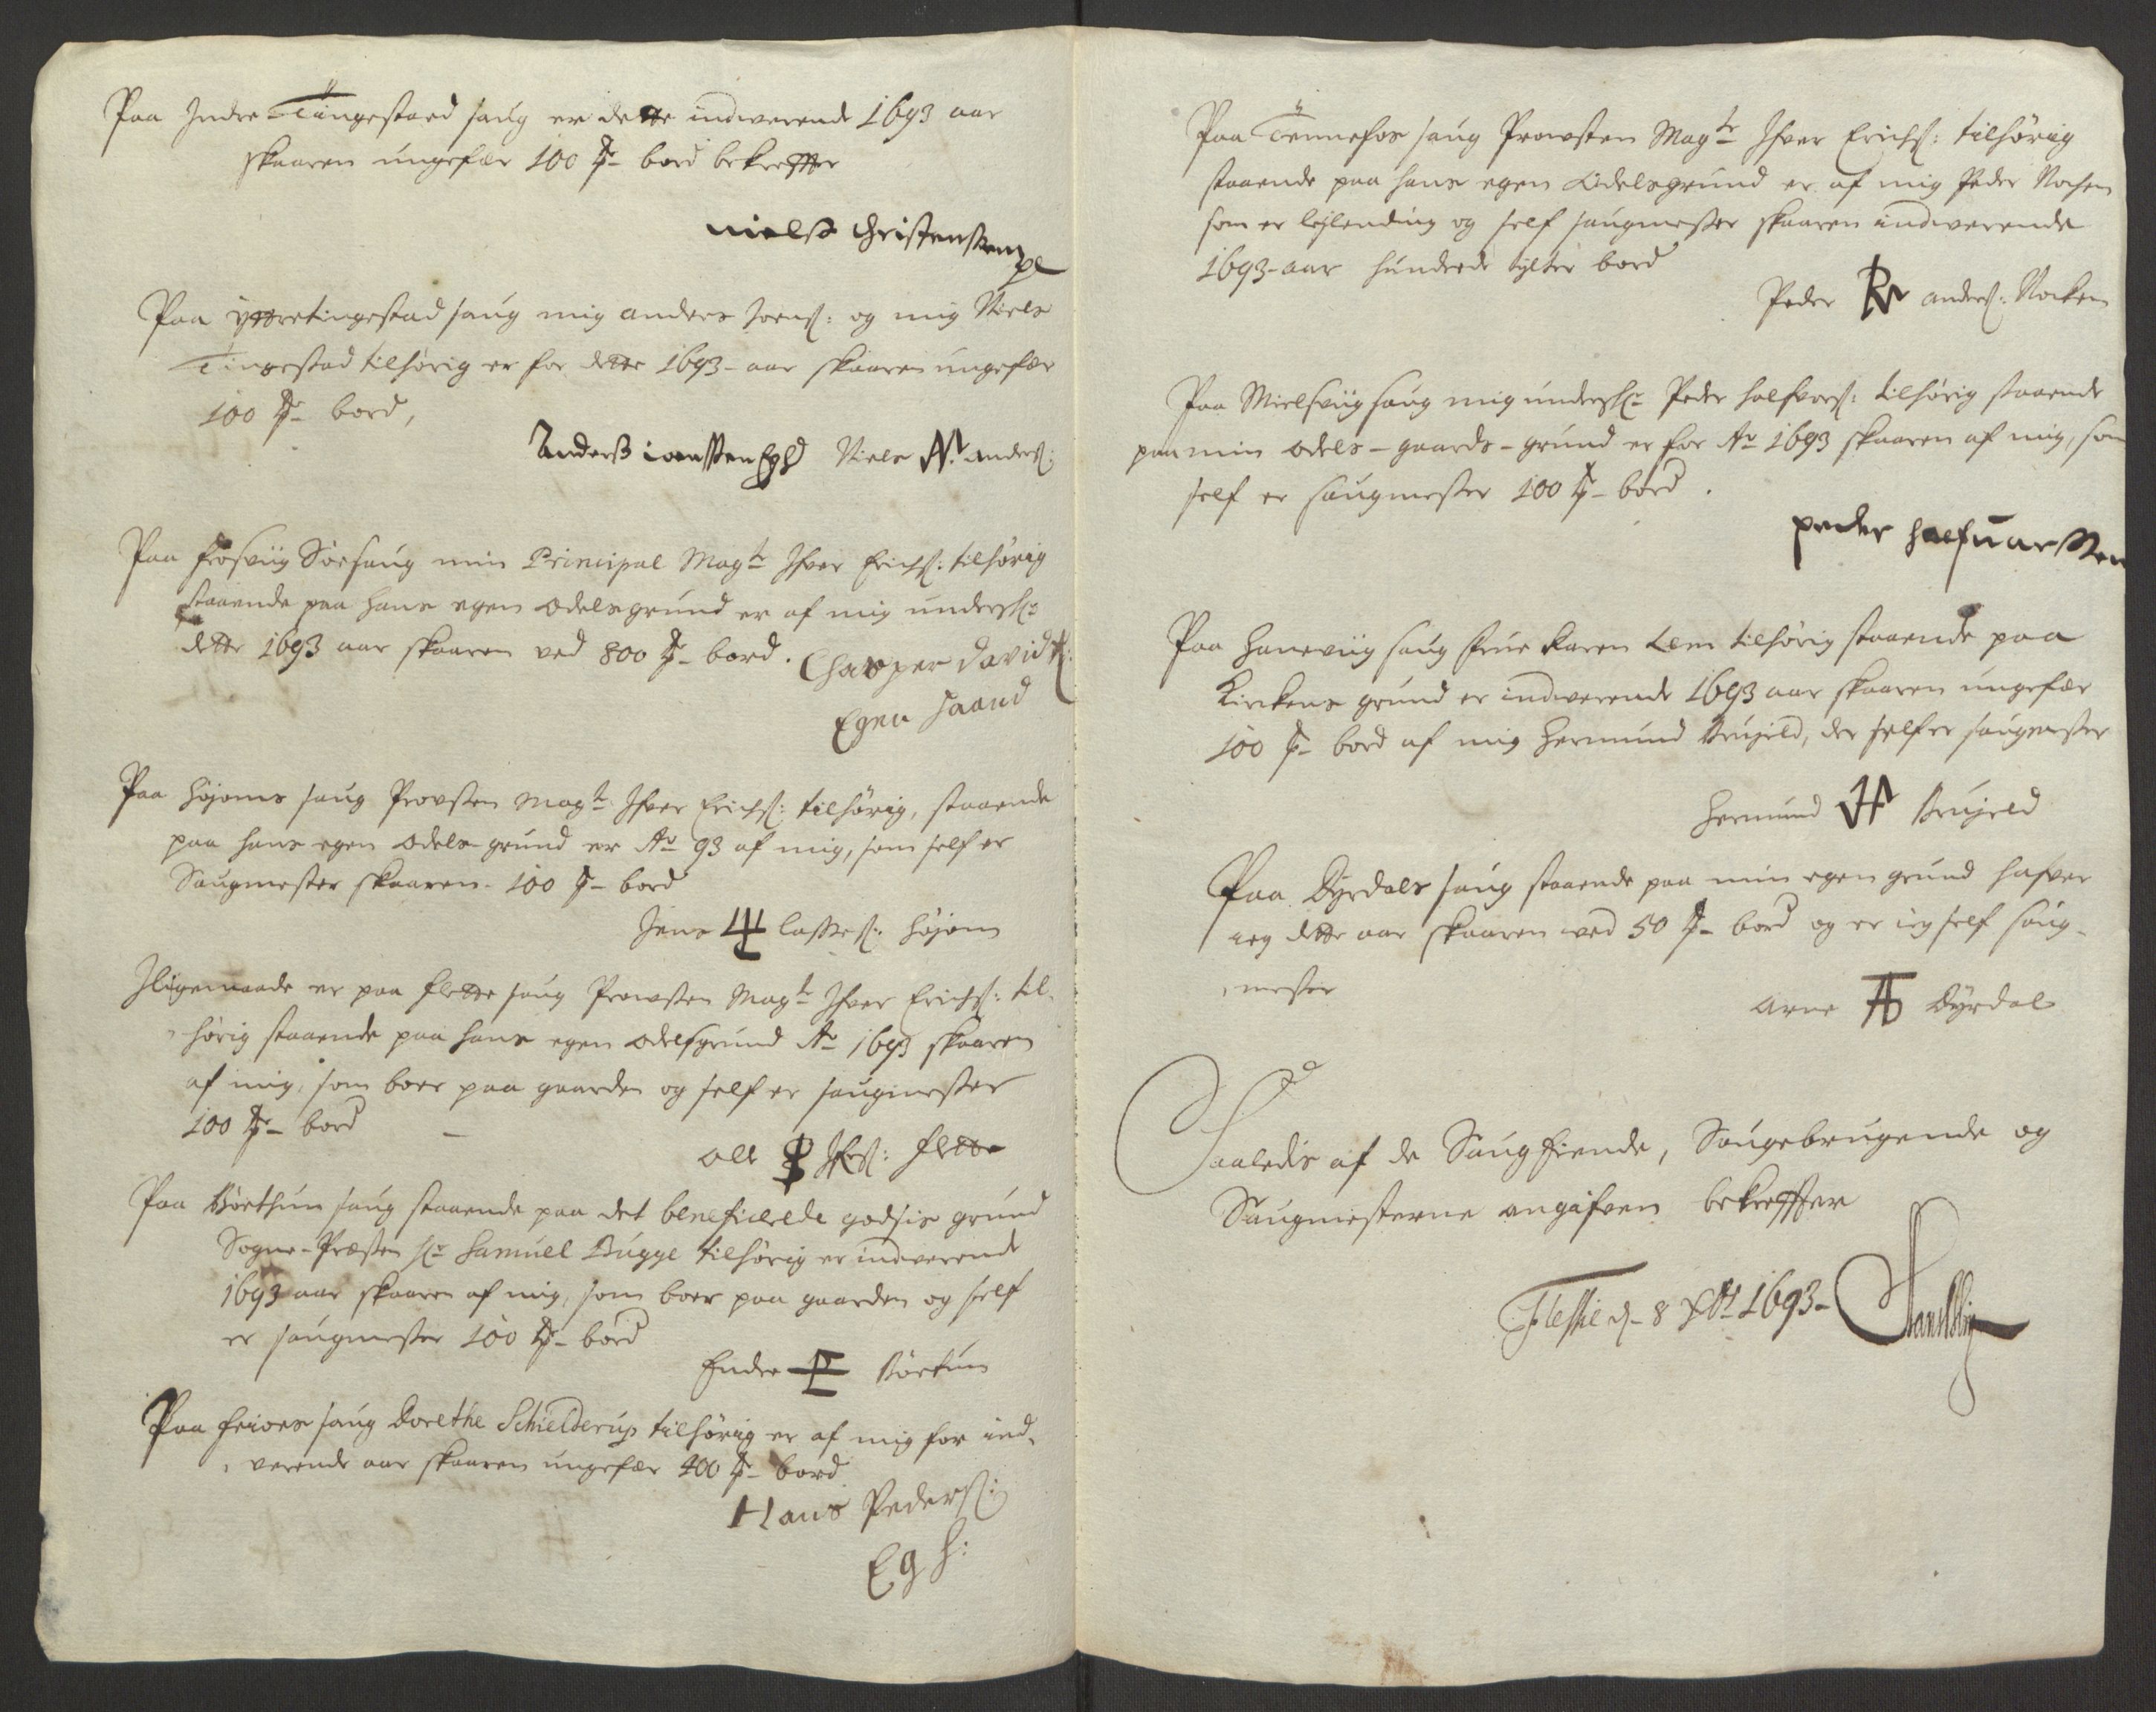 Paa Indre Tingestad saug er dette indverende 1693 aar
skaaren ungefær 100 T- bord bekreffter
nielss Christenssen
Paa ÿttretingestad saug mig anders Joens: og mig Niels
Tingestad tilhørig er for dette 1693-aar skaaren ungefær
100 T- bord,
Anderss ioenssen EgH Niels N. anders:
Paa frosviig Sørsaug min Principal Magtr Ifver Erichs: tilhørig
staaende paa hans egen odelsgrund er af mig undersk:
dette 1693 aar skaaren ved 800 T- bord. Chasper Davids:
Egen Haand
Paa Højoms saug Provsten Magtr Ifver Erichs: tilhørig, staaende
paa hans egen odels-grund er Ao 93 af mig, som self er
Saugmester skaaren- 100 T- bord
Jens lasses: Højom
Iligemaade er paa flette saug Prowsten Magtr Ifver Erichs: til-
hørig staaende paa hans egen odelsgrund Ao 1693 skaaren
af mig, som boer paa gaarden og self er saugmester
100 T- bord
oll Ifs: flette
Paa Børthum saug staaende paa det beneficerede godsis grund
Sogne-Præsten Hr Samuel Bugge tilhørig er indverende
1693 aar skaaren af mig, som boer paa gaarden og self
er saugmester 100 T- bord
Ender E Børtum
Paa feioes saug Dorethe Schielderup tilhørig er af mig for ind-
verende aar skaaren ungefær 400 T- bord
Hans Peders:
Eg H:
Paa Tennefos saug Prowsten Magtr Ifver Erichs: tilhørig
staaende paa hans egen Odelsgrund er af mig Peder Nochen
som er leylending og self saugmester skaaren indverende
1693-aar hundrede tylter bord
Peder anders: Nocken
Paa Mielsviig saug mig undersk: Peder halfvors: tilhørig staaende
paa min odels-gaards-grund er for Ao 1693 skaaren af mig, som
self er saugmester 100 T- bord.
peder halfuarssen
Paa Haneviig saug frue Karen Lem tilhørig staaende paa
Kirkens grund er indverende 1693 aar skaaren ungefær
100 T- bord af mig Hermund, der self er saugmester
Hermund H
Paa Dyrdals saug staaende paa min egen grund hafver
ieg dette aar skaaren ved 50 T- bord og er ieg self saug-
mester
Arne A Dyrdal
Saaledis af de Saugeiende, Saugebrugende og
Saugmesterne angifven bekreffter
d- 8 Xbr 1693-